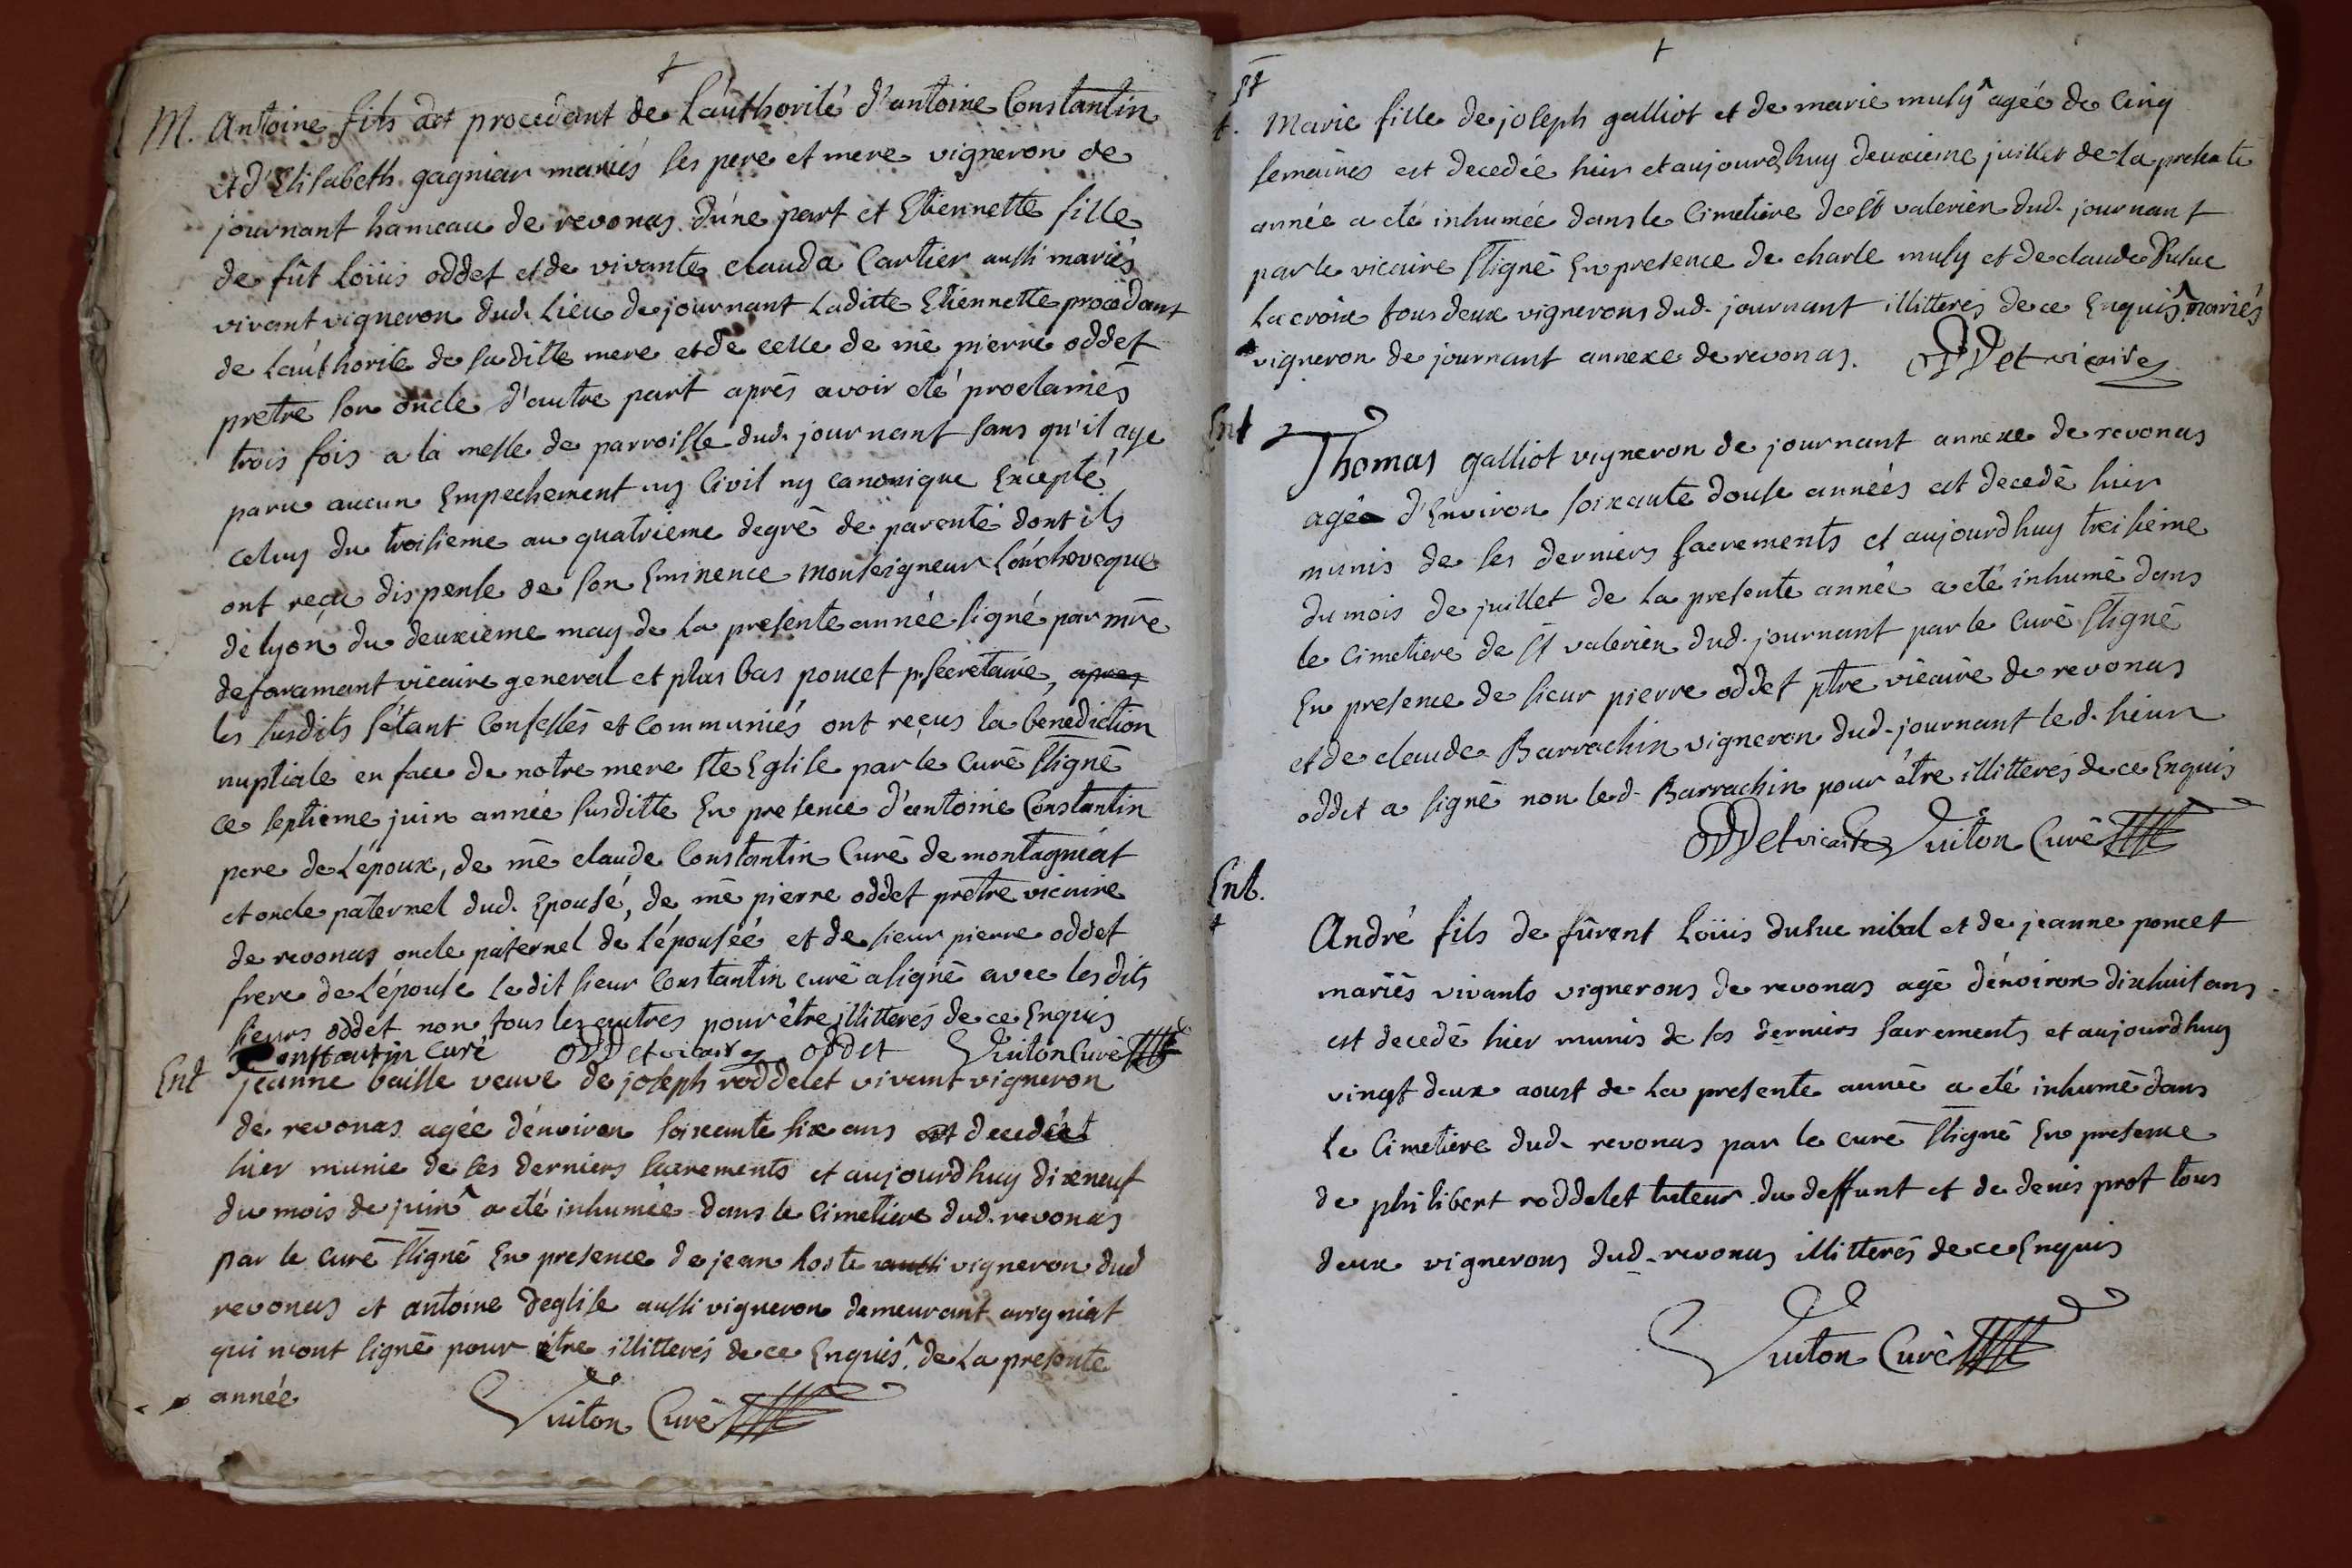 M. Antoine fils et procedant de L'authorité d'antoine Constantin
et d'Elisabeth gagniar mariés ses pere et mere vigneron de
journant hameau de revonas d'une part et Etiennette fille
de fût Loüis oddet et de vivante clauda Cartier aussi mariés
vivant vigneron dud. Lieu de journant Laditte Etiennette procedant
de L'authorité de saditte mere et de celle de me pierre oddet
pretre son oncle d'autre part aprés avoir été proclamés
trois fois a la messe de parroisse dud. journant sans qu'il aye
paru aucun Empechement ny Civil ny canonique Excepté
celuy du troisieme au quatrieme degré de parenté dont ils
ont reçu dispense de son Eminence monseigneur L'archeveque
de lyon du deuxieme may de La presente année signé par mre
de faramant vicaire general et plus bas poncet p. secretaire, apres
les susdits s'étant Confessés et Communiés ont reçus la benediction
nuptiale en face de notre mere ste Eglise par le Curé ssigné
ce septieme juin année susditte En presence d'antoine Constantin
pere de L'époux, de me claude Constantin Curé de montagniat
et oncle paternel dud. Epousé, de me pierre oddet pretre vicaire
de revonas oncle paternel de L'épousée et de sieur pierre oddet
frere de L'épouse Ledit sieur Constantin curé a signé avec lesdits
sieurs oddet non tous les autres pour être illitterés de ce Enquis
Constantin Curé oddet vicaire oddet Vuiton Curé
Ent jeanne baille veuve de joseph roddelet vivant vigneron
de revonas agée d'environ soixante six ans est decedée
hier munie de ses derniers sacrements et aujourdhuy dixneuf
du mois de juin^ a été inhumée dans le Cimetiere dud. revonas
par le curé ssigné En presence de jean hoste aussi vigneron dud
revonas et antoine deglise aussi vigneron demeurant arigniat
qui n'ont signé pour être illitterés de ce Enquis ^. de La presente
année
Vuiton Curé
Marie fille de joseph galliot et de marie musy^ agée de Cinq
semaines est decedée hier et aujourdhuy deuxieme juillet de La presente
année a été inhumée dans le Cimetiere de St valerien dud. journant
par le vicaire ssigné En presence de charle musy et de claude dusuc
Lacroix tous deux vignerons dud. journant illitterés de ce Enquis ^ mariés
vigneron de journant annexe de revonas. Oddet vicaire
Ent
Thomas galliot vigneron de journant annexe de revonas
agé d'Environ soixante douse années est decedé hier
munis de ses derniers sacrements et aujourdhuy treisieme
du mois de juillet de La presente année a été inhumé dans
le Cimetiere de St valerien dud. journant par le Curé ssigné
En presence de sieur pierre oddet ptre vicaire de revonas
et de claude Barrachin vigneron dud. journant led. sieur
oddet a signé non led. Barrachin pour être illitterés de ce Enquis
Oddet vicaire Vuiton Curé
Ent.
André fils de fûrent Loüis dusuc nibal et de jeanne poncet
mariés vivants vignerons de revonas agé d'environ dixhuit ans
est decedé hier munis de ses derniers sacrements et aujourdhuy
vingt deux aoust de La presente année a été inhumé dans
Le Cimetiere dud. revonas par le curé ssigné En presence
de philibert roddelet tuteur du deffunt et de denis prot tous
deux vignerons dud. revonas illitterés de ce Enquis
Vuiton Curé